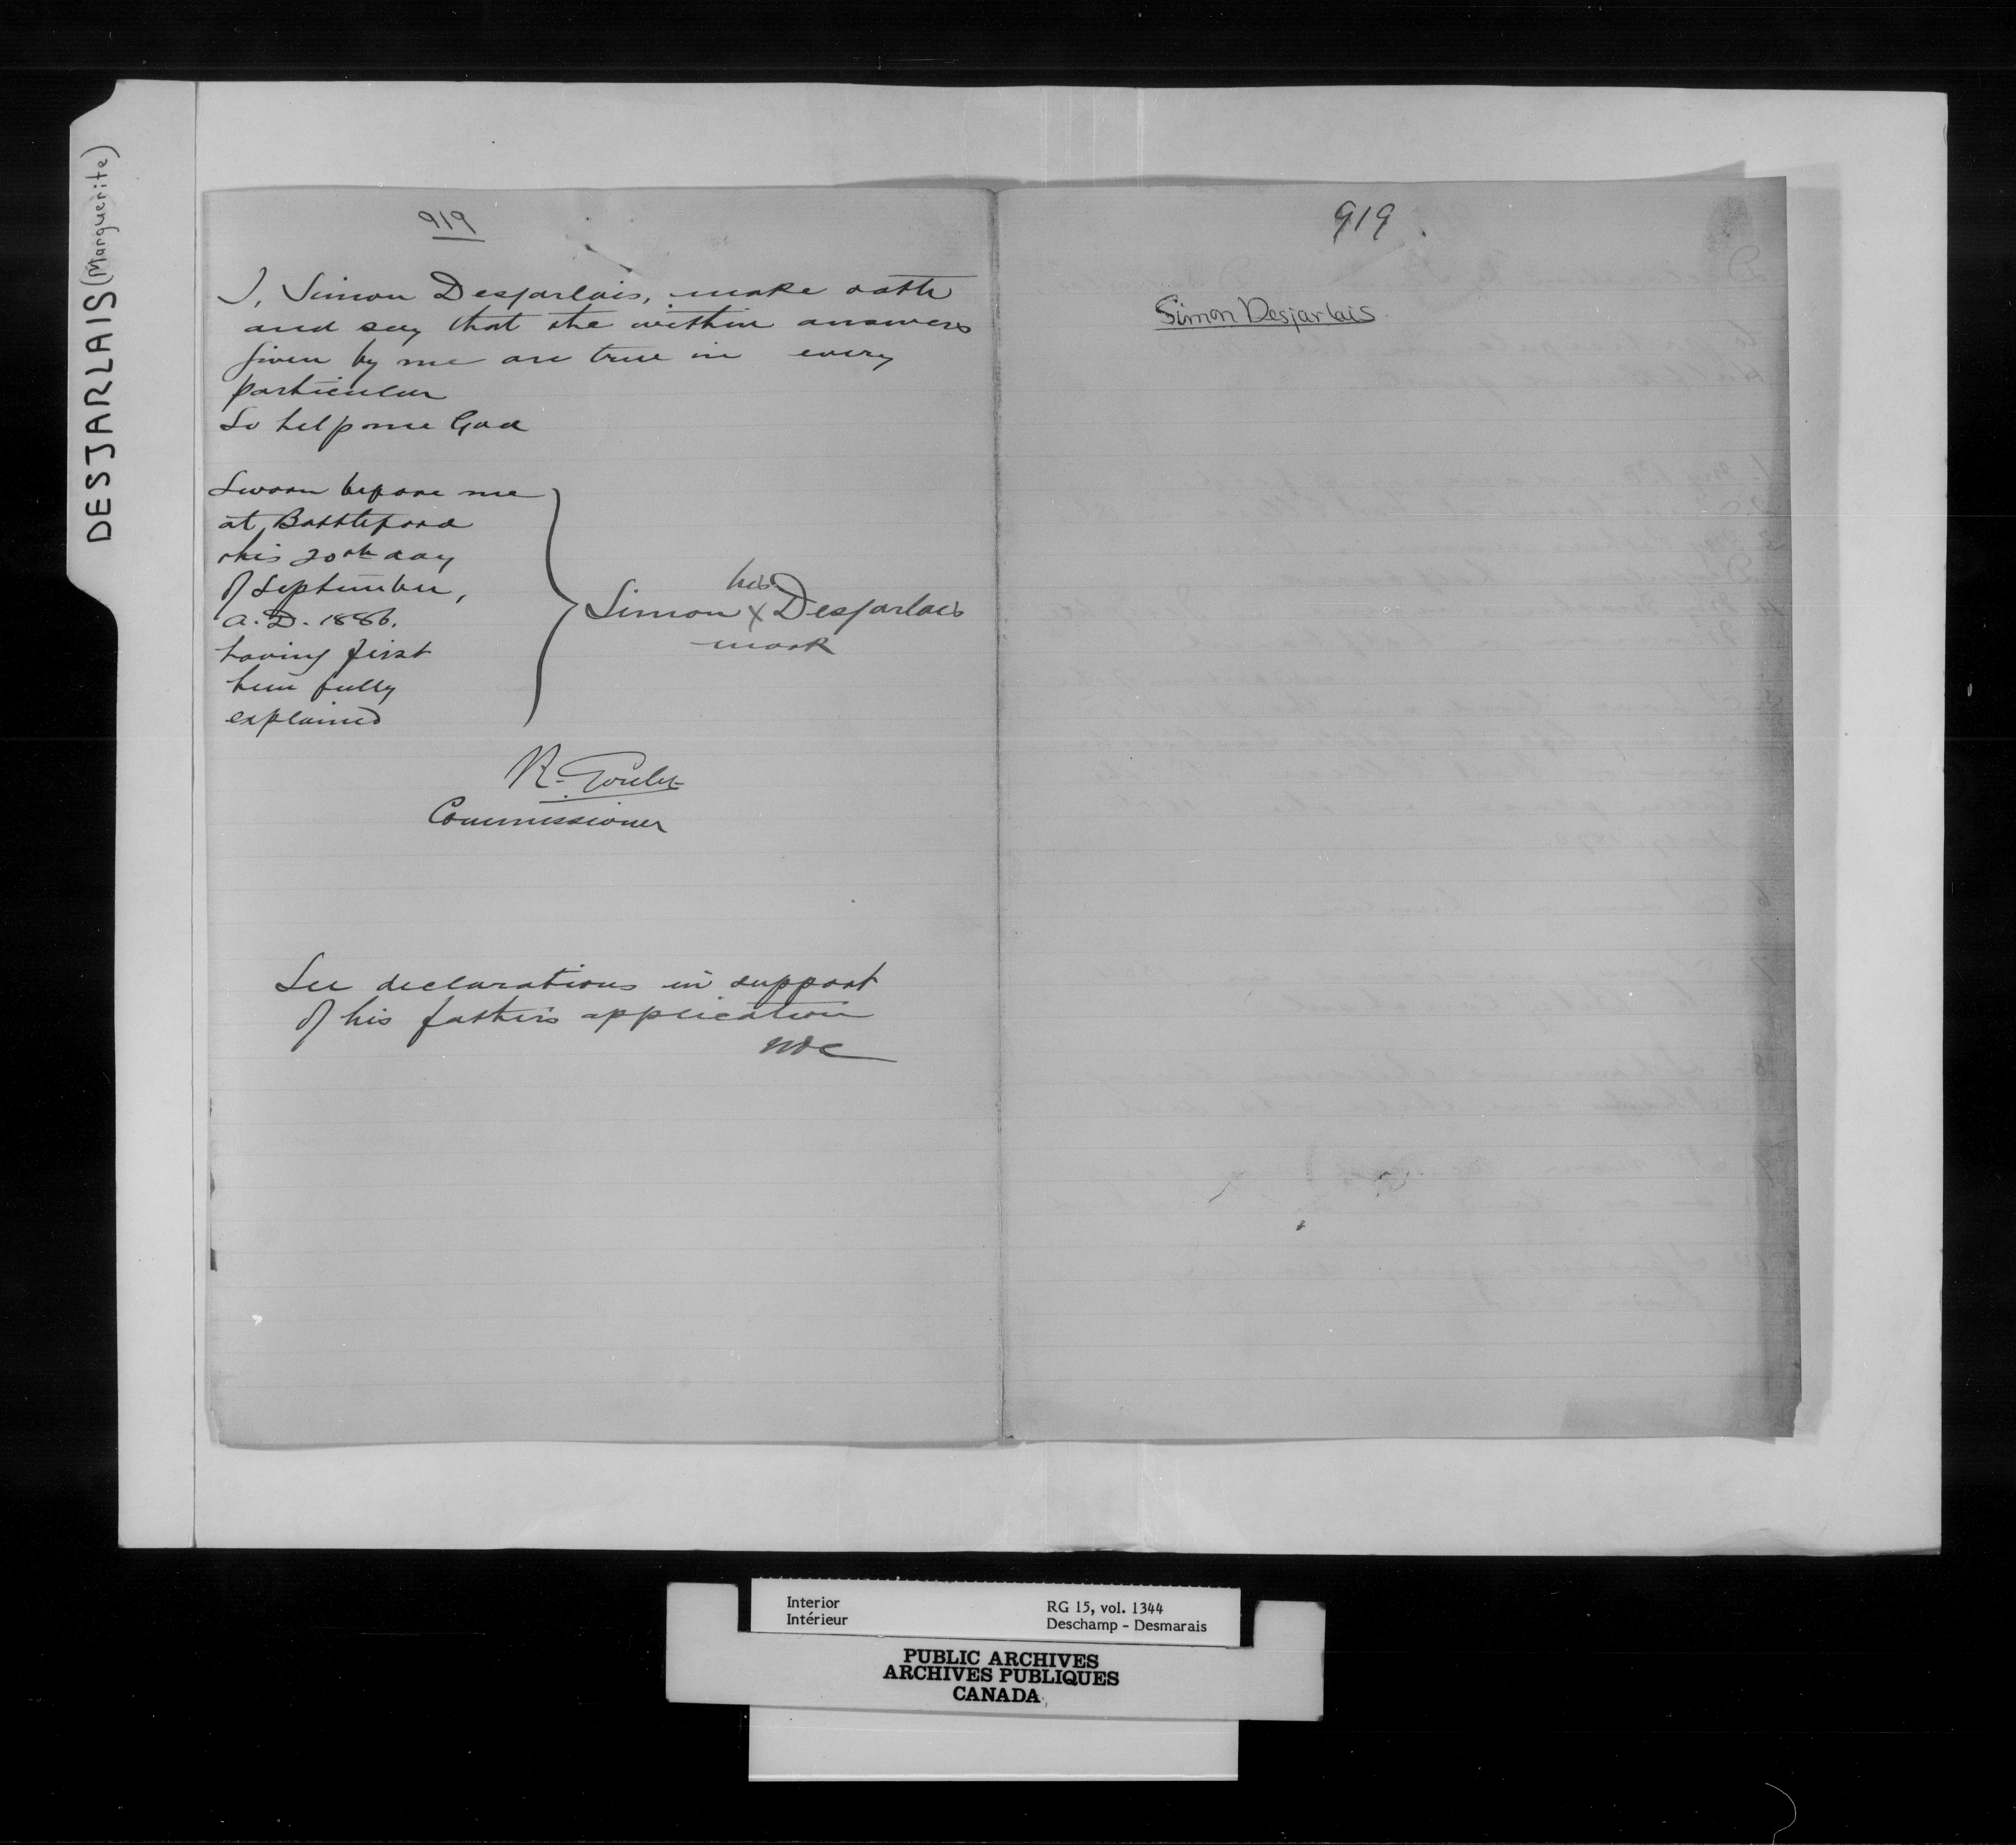 DESJARLAIS (Marguerite)
919
I, Simon Desjarlais, make oath
and say that the within answers
given by me are true in every
particular
So help me God
Sworn before me
at Battleford
this 20th day
of September,
A.D. 1886.
having first
him fully
explained
his
Simon X Desjarlais
mark
R. Goulet
Commissioner
See declarations in support
of his father's application
919
Simon Desjarlais
Interior
Intérieur
RG 15, vol. 1344
Deschamp - Desmarais
PUBLIC ARCHIVES
ARCHIVES PUBLIQUES
CANADA